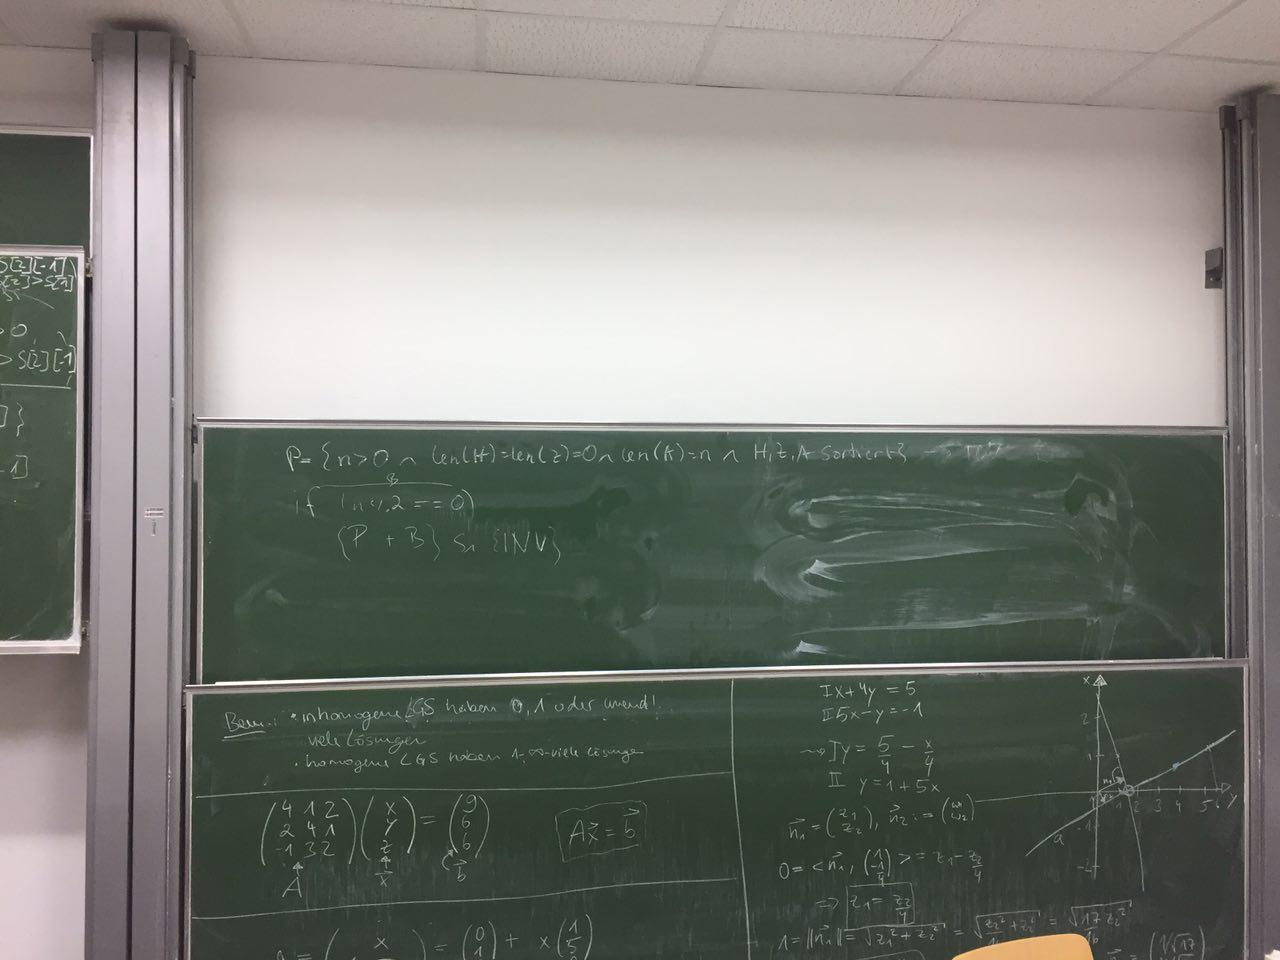 S[2][-1]
S[2] > S[1]
> 0
> S[2][-1]
]}
-1]
P= {n>0 ∧ len(H)=len(Z)=0 ∧ len(A)=n ∧ H,Z,A sortiert}
B
if (n % 2 == 0)
{P + B} S₁ {INV}
Bem.: • inhomogene LGS haben 0, 1 oder unendl.
viele Lösungen
• homogene LGS haben 1, ∞-viele Lösungen
(4 1 2) (x) = (9)
(2 4 1) (y) (6)
(-1 3 2) (z) (6)
A x⃗ b⃗
Ax⃗ = b⃗
(x) = (0) + x(1)
(1) (5)
I x+4y = 5
II 5x-y = -1
⇝ I y = 5/4 - x/4
II y = 1+5x
n⃗₁ = (z₁ z₂), n⃗₂ := (w₁ w₂)
0 = <n⃗₁, (1 -1/4)> = z₁ - z₂/4
⇒ z₁ = z₂/4
1 = ||n⃗₁|| = √(z₁² + z₂²) = √(z₂²/16 + z₂²) = √(17 z₂²/16)
x
2
1
1 2 3 4 5 6 y
-1
-2
a